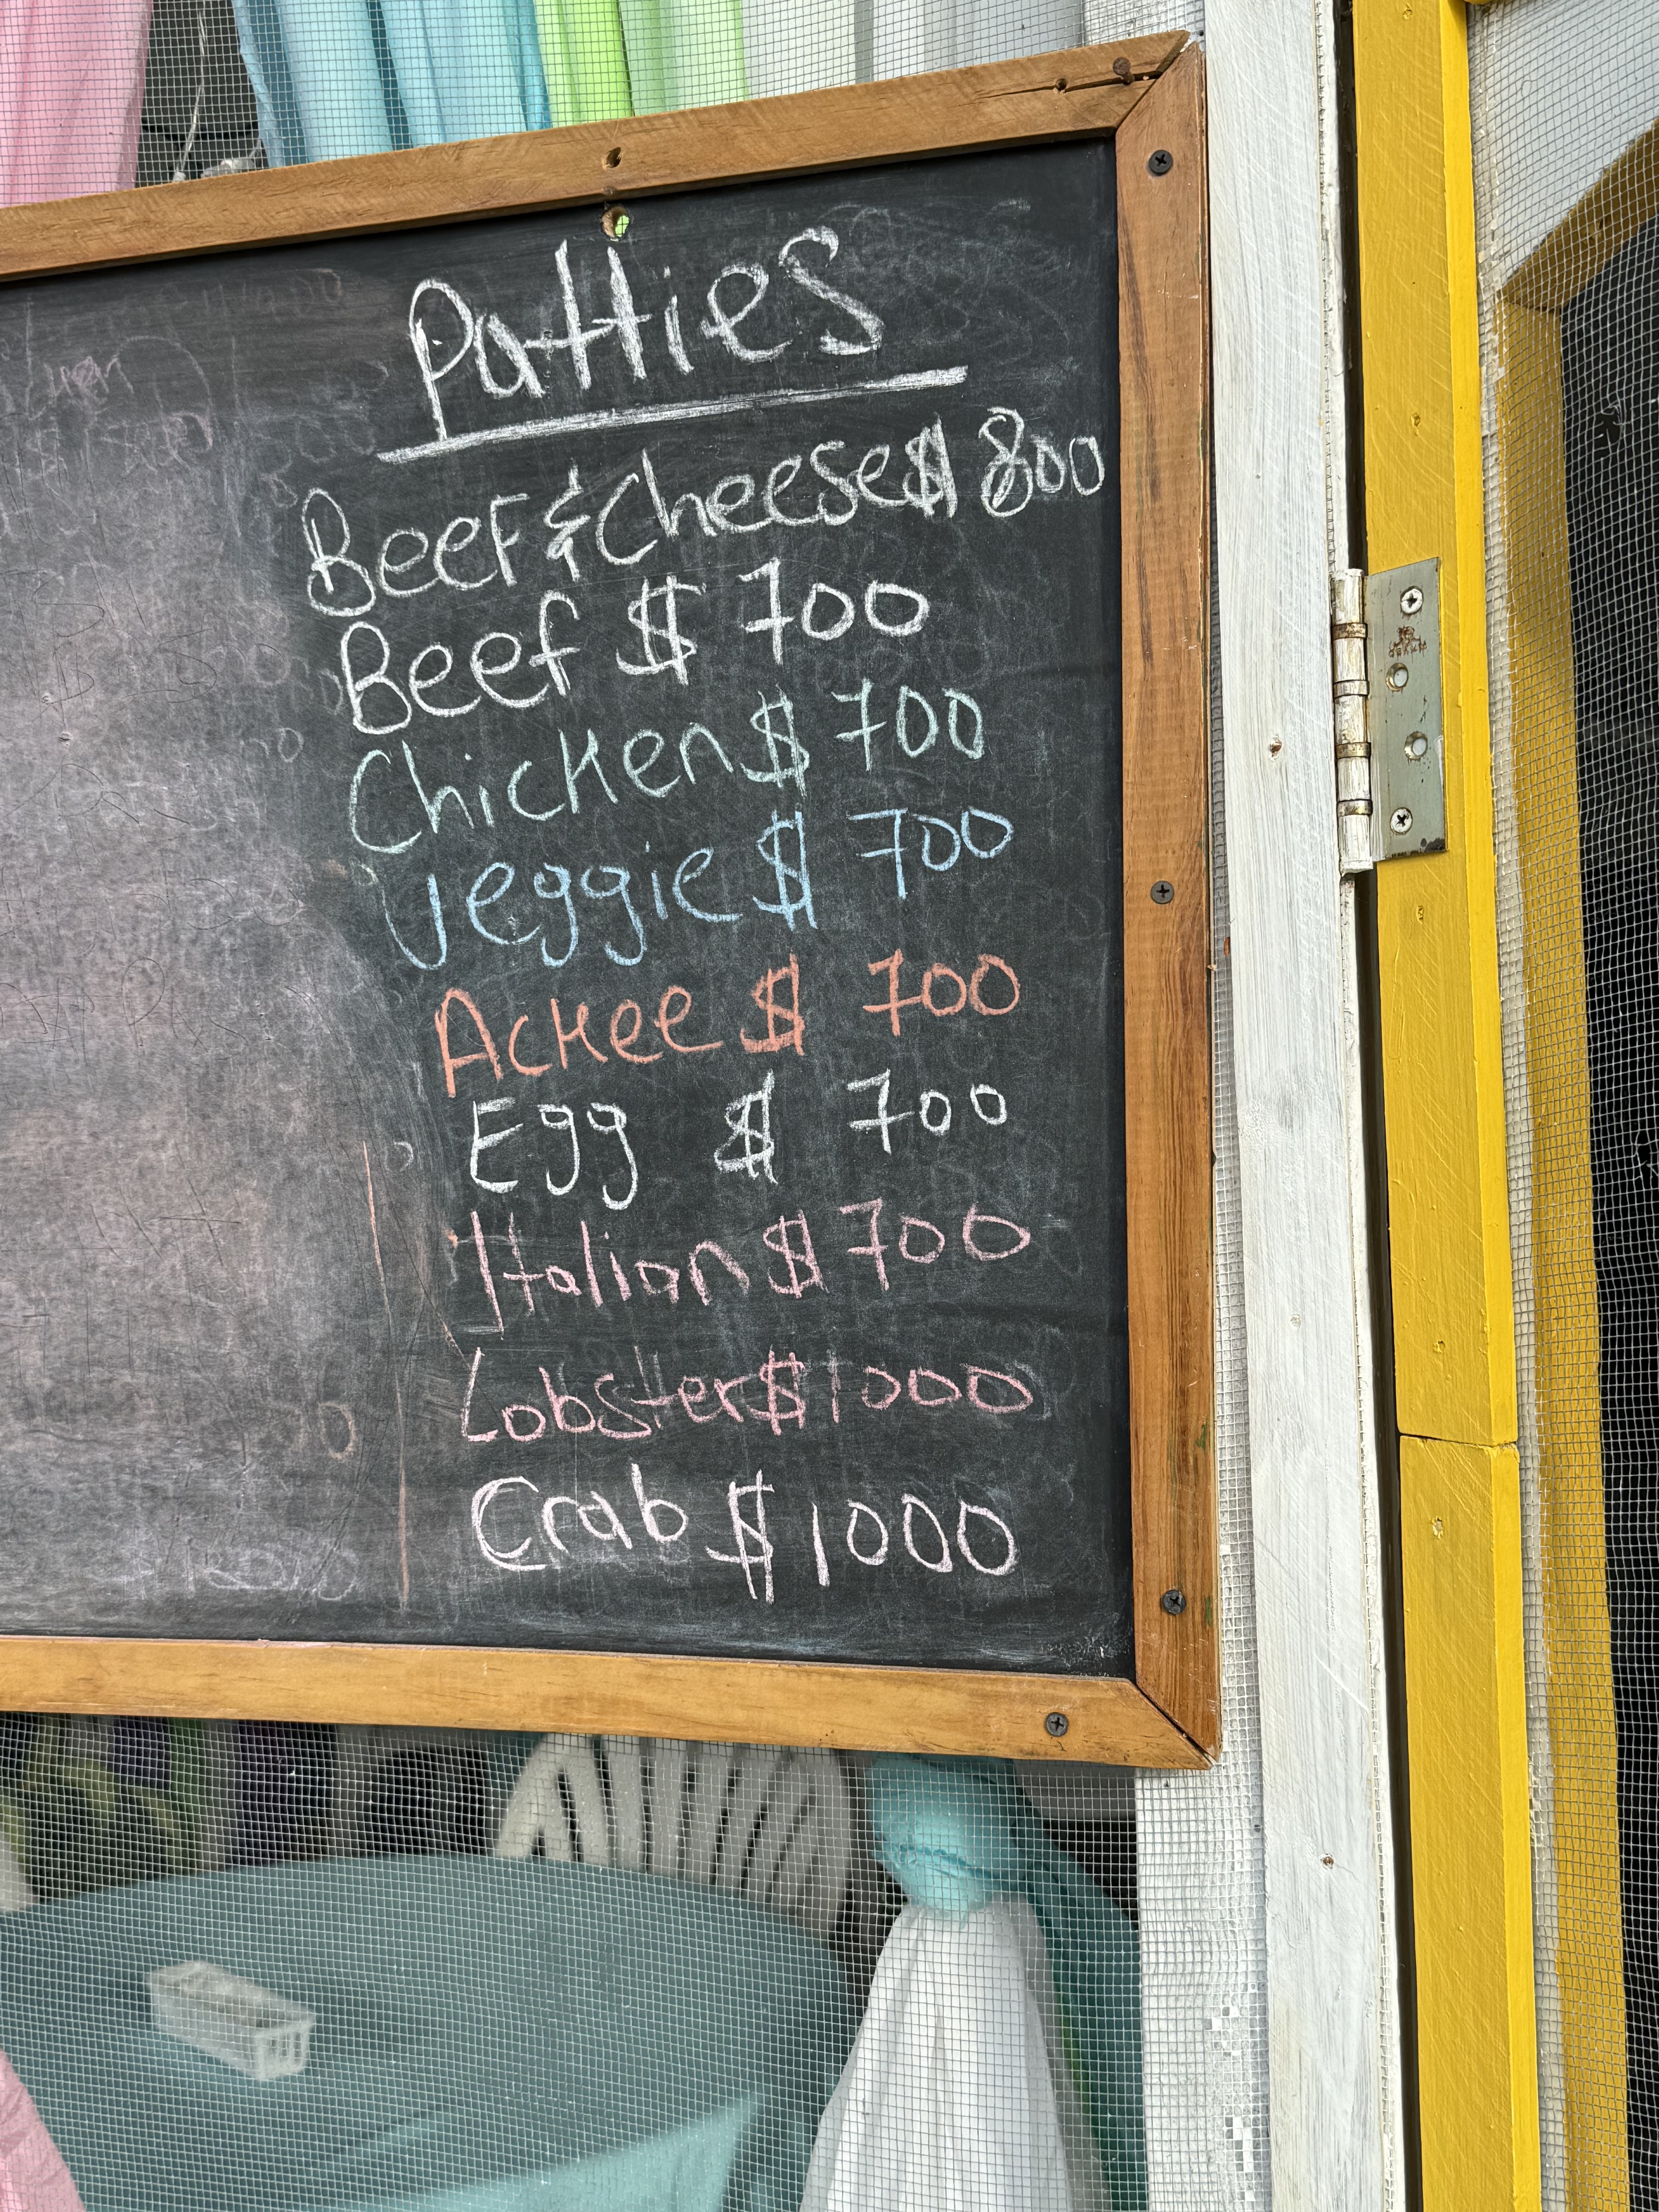 Patties
Beef & Cheese $ 800
Beef $ 700
Chicken $ 700
Veggie $ 700
Ackee $ 700
Egg $ 700
Italian $ 700
Lobster $ 1000
Crab $ 1000